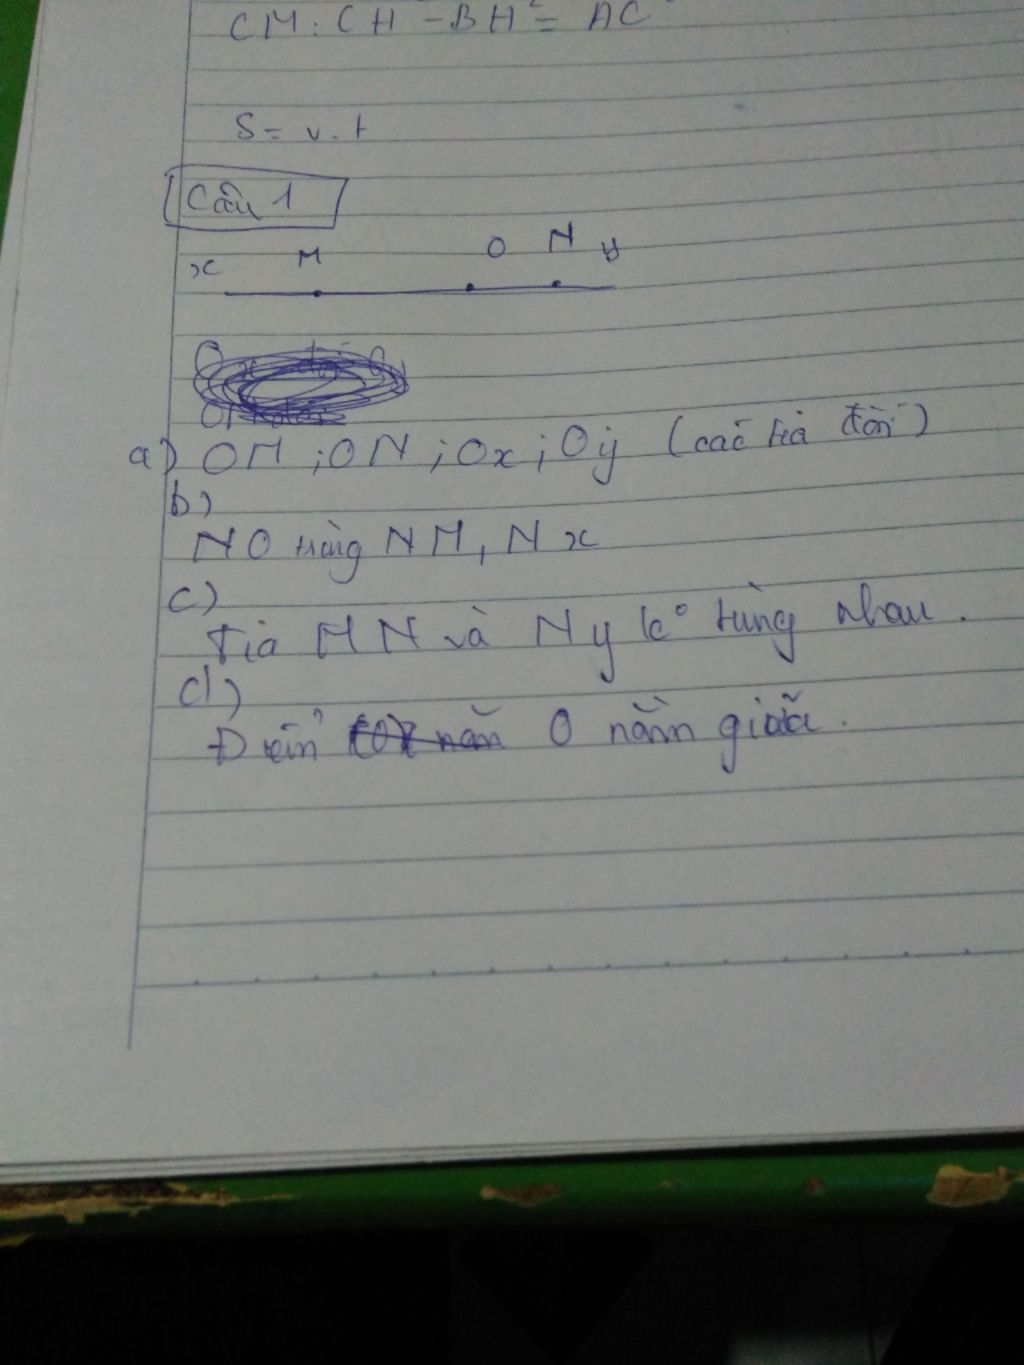 CM: CH² - BH² = AC²
S = v.t
Câu 1
x M O N y
a) OM ; ON ; Ox ; Oy (các tia đối)
b)
NO trùng NM, Nx
c)
Tia MN và Ny k° trùng nhau.
d)
Điểm O nằm giữa.